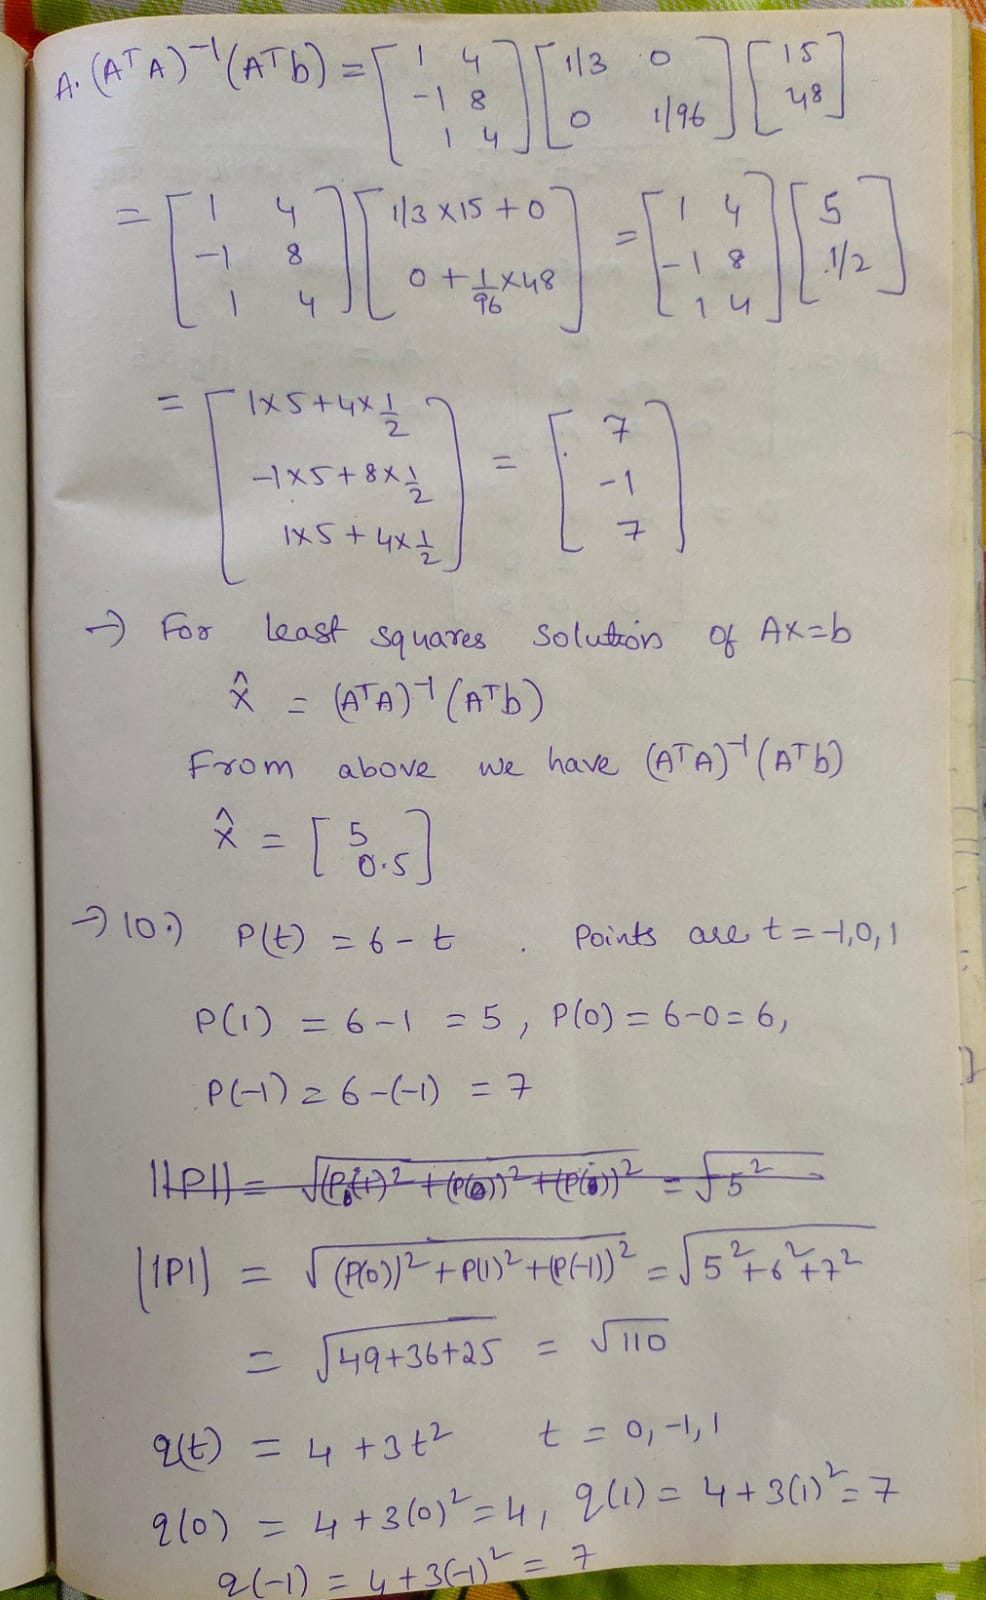 A. (AᵀA)⁻¹(Aᵀb) = [1 4; -1 8; 1 4] [1/3 0; 0 1/96] [15; 48]
= [1 4; -1 8; 1 4] [1/3 x 15 + 0; 0 + 1/96 x 48] = [1 4; -1 8; 1 4] [5; 1/2]
= [1x5 + 4x1/2; -1x5 + 8x1/2; 1x5 + 4x1/2] = [7; -1; 7]
→ For least squares solution of AX=b
x̂ = (AᵀA)⁻¹(Aᵀb)
From above we have (AᵀA)⁻¹(Aᵀb)
x̂ = [5; 0.5]
→ 10.) P(t) = 6 - t . Points are t = -1, 0, 1
P(1) = 6-1 = 5, P(0) = 6-0 = 6,
P(-1) = 6-(-1) = 7
||P|| = √(P(0))² + P(1)² + (P(-1))² = √5² + 6² + 7²
= √49+36+25 = √110
q(t) = 4 + 3t² t = 0, -1, 1
q(0) = 4 + 3(0)² = 4, q(1) = 4 + 3(1)² = 7
q(-1) = 4 + 3(-1)² = 7